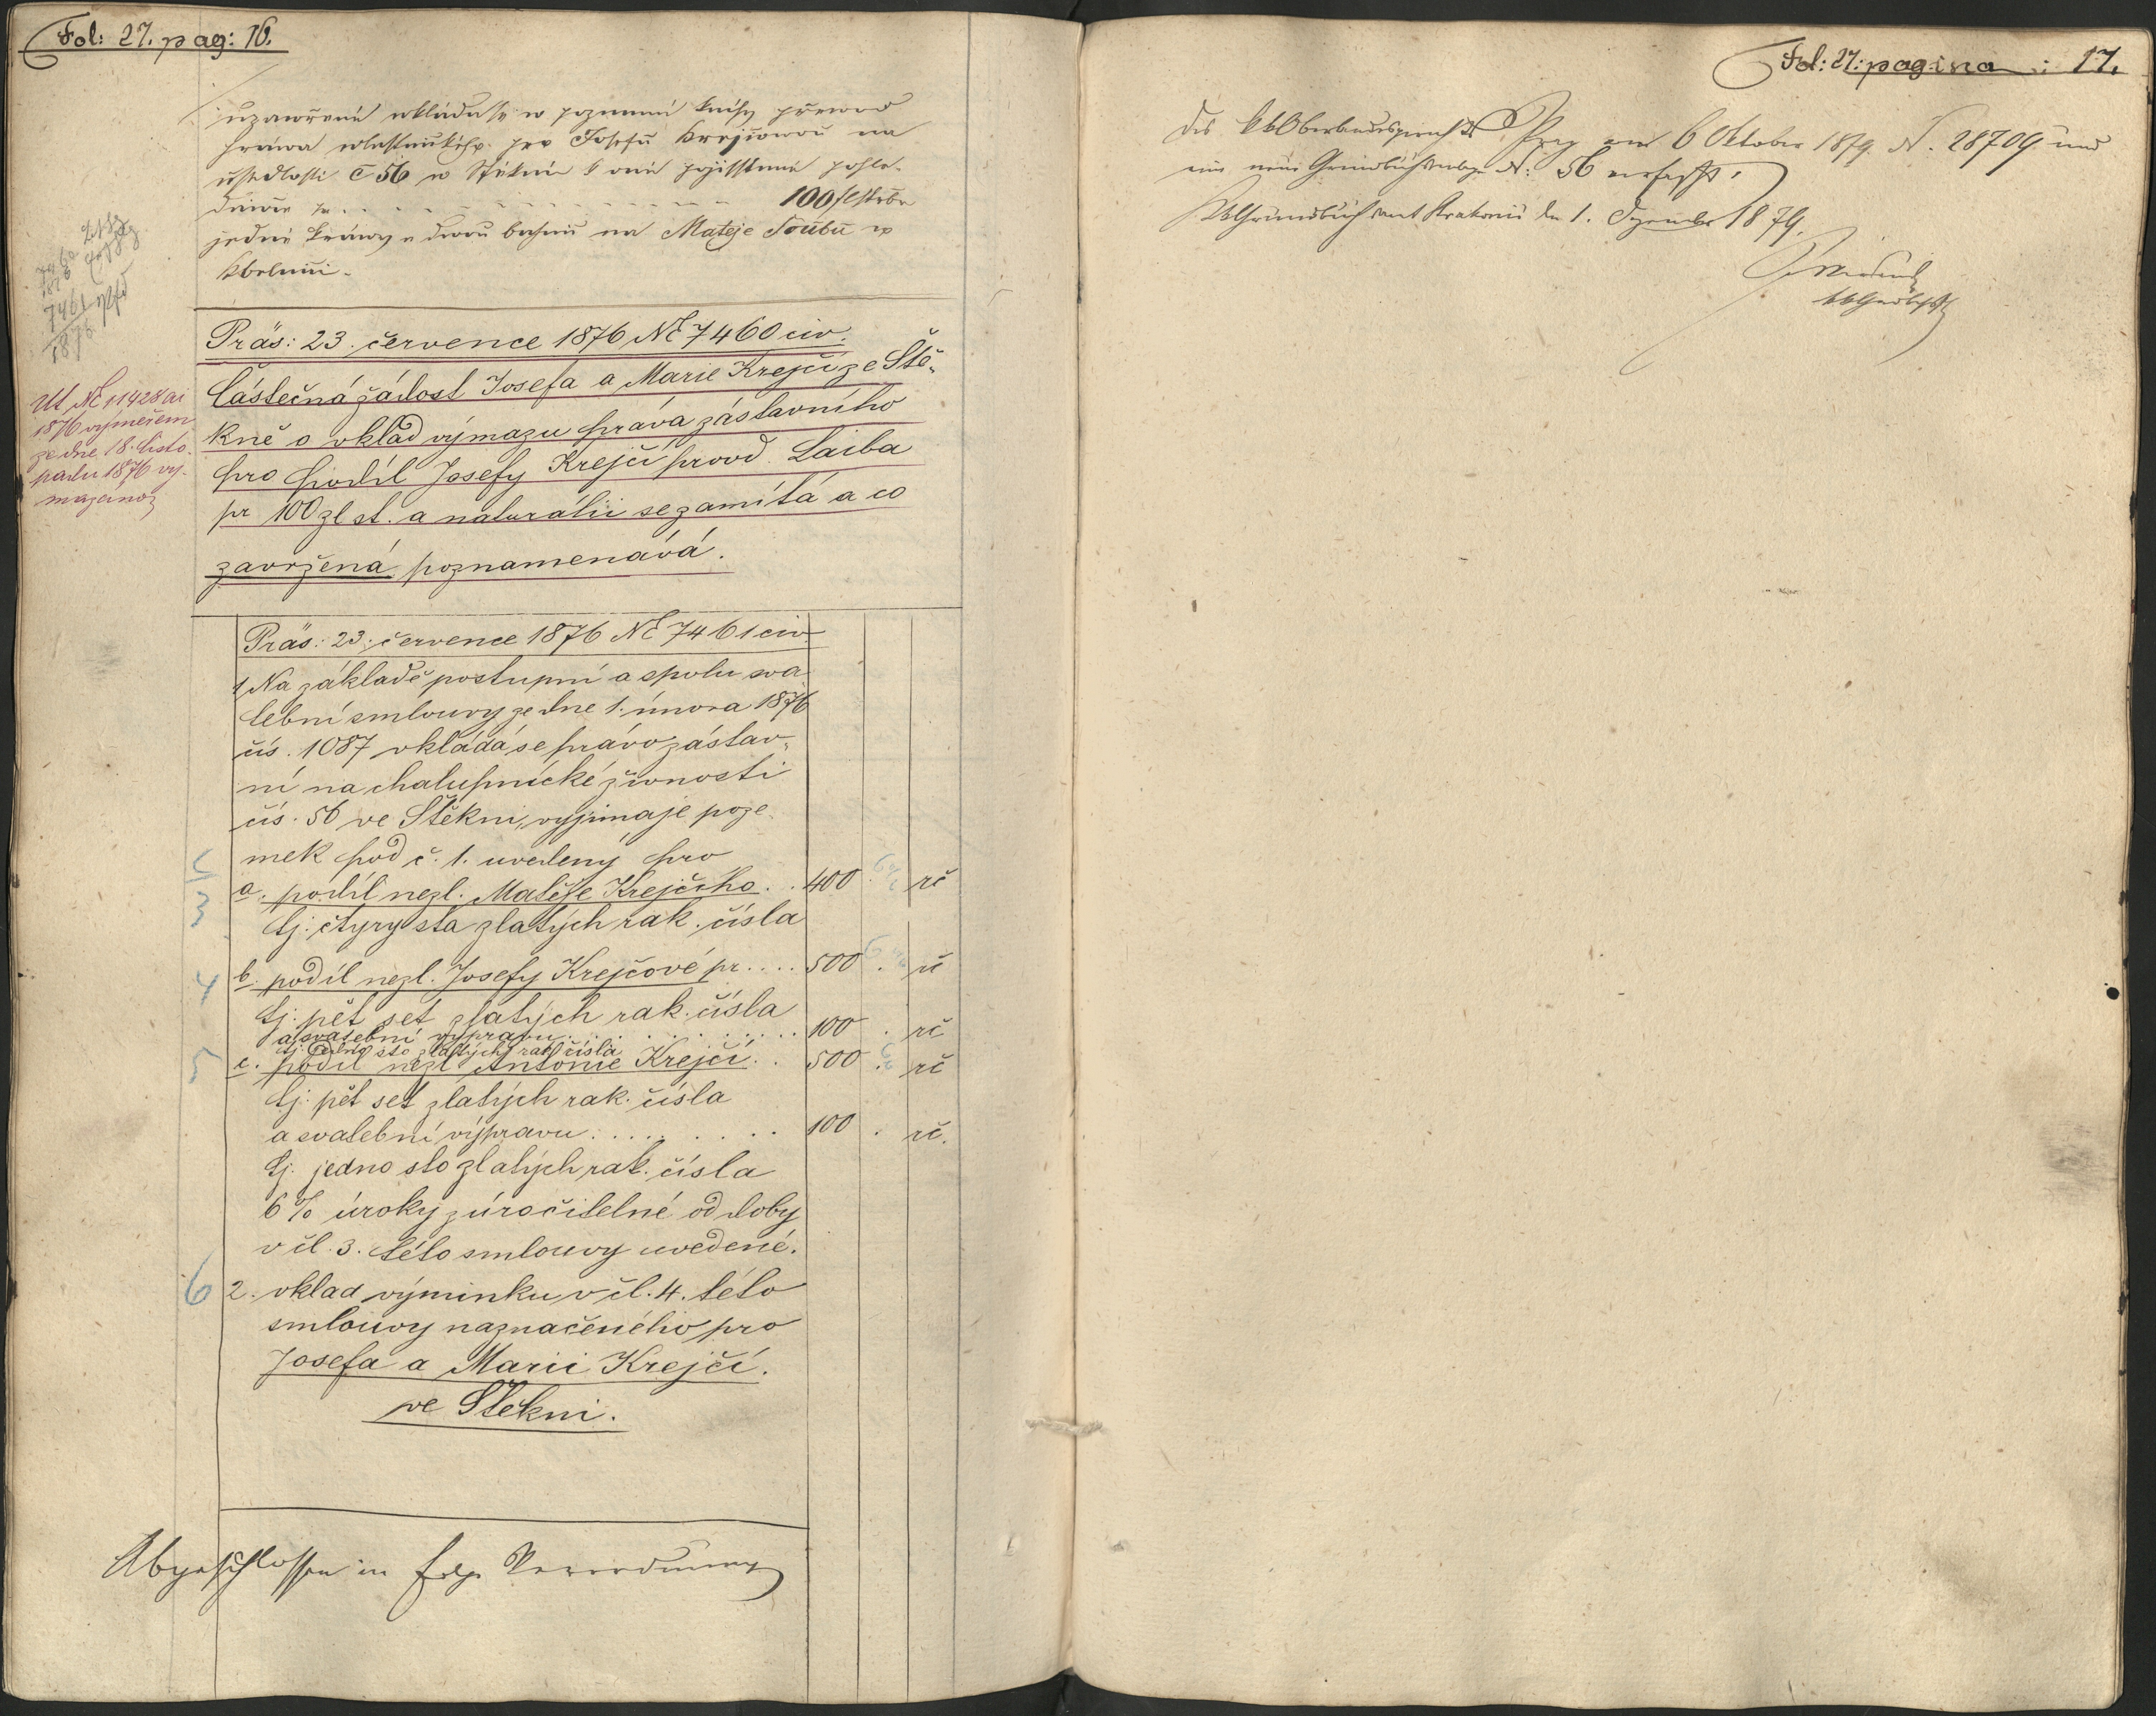 Fol: 27. pag: 16.
uzawřené wkládá se w pozemní knihy převod
práwa wlastnického pro Josefu Krejčowou na
usedlosti č 56 w Štěkni k oné pojištěné pohle-
dáwce pr. 100 fl stříbr
jedné kráwy a dwou bahnic na Matěje Soubu w
Kbelnici.
7461
1876
Präs: 23. července 1876 NE 7460 civ.
Částečná žádost Josefa a Marie Krejčí ze Ště-
kně o vklad výmazu práva zástavního
pro podíl Josefy Krejčí provd. Laiba
pr 100 zl st. a naturálií se zamítá a co
zavržená poznamenává.
Ut NE 11428 ai
1876 výměrem
ze dne 18. listo-
padu 1876 vy-
mazáno
Präs: 23. července 1876 NE 7461 civ.
1 Na základě postupní a spolu sva-
tební smlouvy ze dne 1. února 1876
čís. 1087 vkládá se právo zástav-
ní na chalupnické živnosti
čís. 56 ve Štěkni, vyjímaje poze-
mek pod č. 1. uvedený pro
3 a. podíl nezl. Matěje Krejčího . . 400 . rč
tj: čtyry sta zlatých rak. čísla
4 b. podíl nezl. Josefy Krejčové pr. . . . 500 . rč
tj: pět set zlatých rak. čísla
a svatební výpravu . . . . . . . . . 100 . rč
tj. jedno sto zlatých rak čísla
5 c. podíl nezl Antonie Krejčí . . 500 . rč
tj: pět set zlatých rak. čísla
a svatební výpravu . . . . . . . . 100 . rč.
tj. jedno sto zlatých rak. čísla
6% úroky zúročitelné od doby
v čl. 3. této smlouvy uvedené.
6 2. vklad výminku v čl. 4. této
smlouvy naznačeného pro
Josefa a Marii Krejčí.
ve Štěkni.
Abgeschlossen in folge Verordnung
Fol: 27: pagina: 17.
des kk Oberlandesgerichts Prag vom 6 Oktober 1879 N. 28709 und
eine neue Grundbuchseinlage N: 56 verfasst.
KK Grundbuchsamt Strakonic den 1. Dezember 1879.